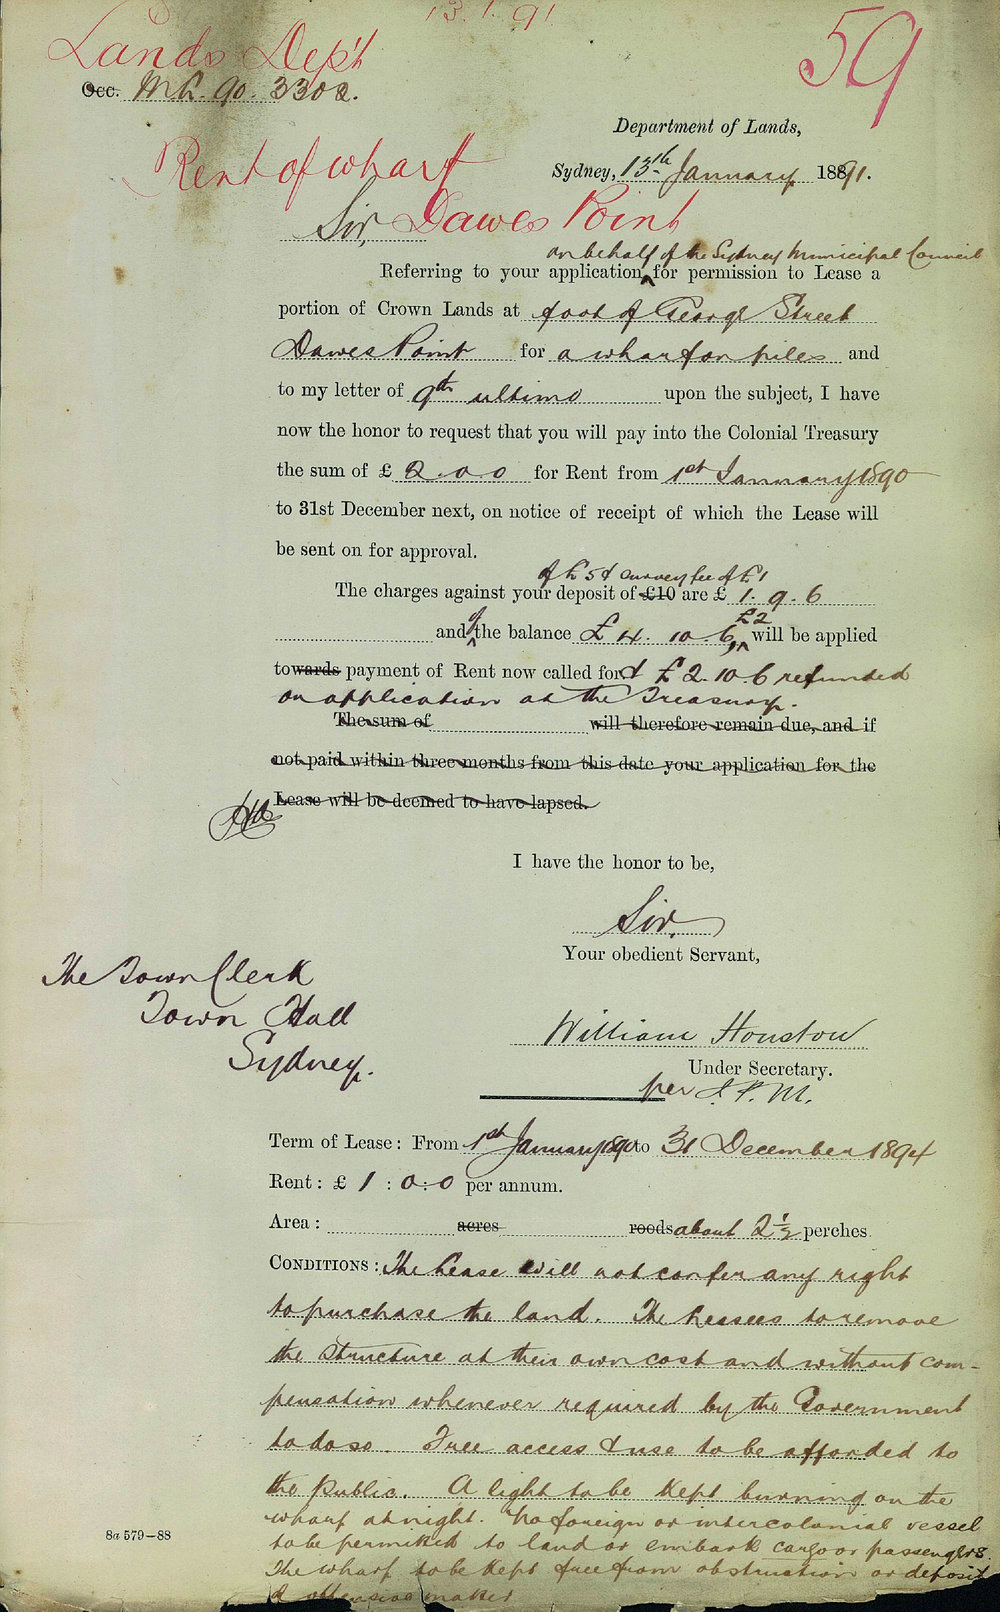 13.1.91
Lands Dep't
59
Occ. M.L. 90. 3302.
Department of Lands,
Rent of wharf
Sydney, 13th January 1891.
Sir, Dawes Point
on behalf of the Sydney Municipal Council
Referring to your application for permission to Lease a
portion of Crown Lands at foot of George Street
Dawes Point for a wharf on piles and
to my letter of 9th ultimo upon the subject, I have
now the honor to request that you will pay into the Colonial Treasury
the sum of £ 2.0.0 for Rent from 1st January 1890
to 31st December next, on notice of receipt of which the Lease will
be sent on for approval.
of £5 & survey fee of £1
The charges against your deposit of £10 are £ 1.9.6
and of the balance £4.10.6, £2 will be applied
towards payment of Rent now called for & £2.10.6 refunded
on application at the Treasury.
The sum of will therefore remain due, and if
not paid within three months from this date your application for the
Lease will be deemed to have lapsed.
I have the honor to be,
Sir,
Your obedient Servant,
The Town Clerk
Town Hall
Sydney.
William Houston
Under Secretary.
per J.P.M.
Term of Lease: From 1st January 1890 to 31 December 1894
Rent: £ 1 : 0 : 0 per annum.
Area : acres roods about 2 1/2 perches
CONDITIONS: The Lease will not confer any right
to purchase the land. The Lessees to remove
the structure at their own cost and without com-
pensation whenever required by the Government
to do so. Free access & use to be afforded to
the Public. A light to be kept burning on the
wharf at night. No foreign or intercolonial vessel
to be permitted to land or embark cargo or passengers.
The wharf to be kept free from obstruction or deposit
of offensive matter
8a 579—88